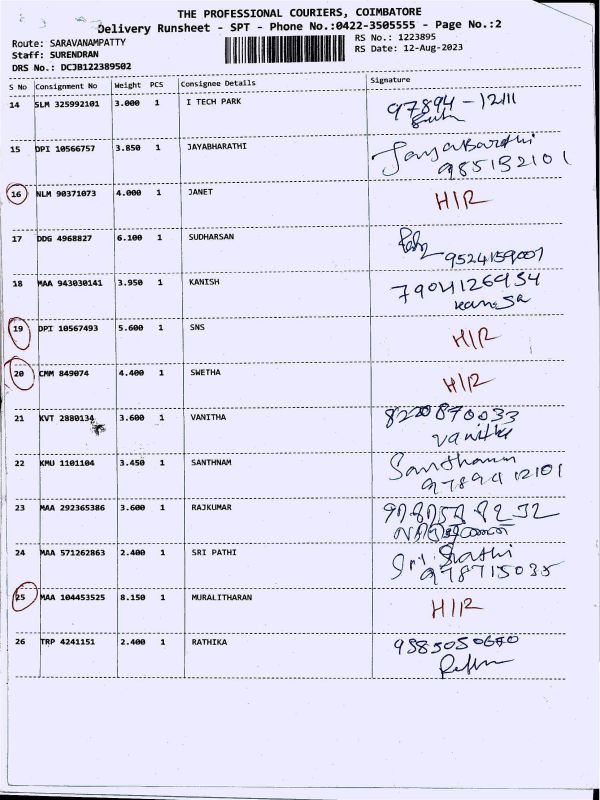 THE PROFESSIONAL COURIERS, COIMBATORE
Delivery Runsheet - SPT - Phone No.:0422-3505555 - Page No.:2
Route: SARAVANAMPATTY
RS No.: 1223895
Staff: SURENDRAN
RS Date: 12-Aug-2023
DRS No.: DCJB122389502
S No Consignment No Weight PCS Consignee Details Signature
14 SLM 325992101 3.000 1 I TECH PARK 97894-12111
15 DPI 10566757 3.850 1 JAYABHARATHI JayaBarathi
985132101
16 NLM 90371073 4.000 1 JANET H/R
17 DDG 4968827 6.100 1 SUDHARSAN
9524159007
18 MAA 943030141 3.950 1 KANISH 7904126934
19 DPI 10567493 5.600 1 SNS H/R
20 CMM 849074 4.400 1 SWETHA H/R
21 KVT 2880134 3.600 1 VANITHA 8220870033
vanitha
22 KMU 1101104 3.450 1 SANTHNAM Santhanam
9789412101
23 MAA 292365386 3.600 1 RAJKUMAR
24 MAA 571262863 2.400 1 SRI PATHI Sri Pathi
978715035
25 MAA 104453525 8.150 1 MURALITHARAN H/R
26 TRP 4241151 2.400 1 RATHIKA 9585050640